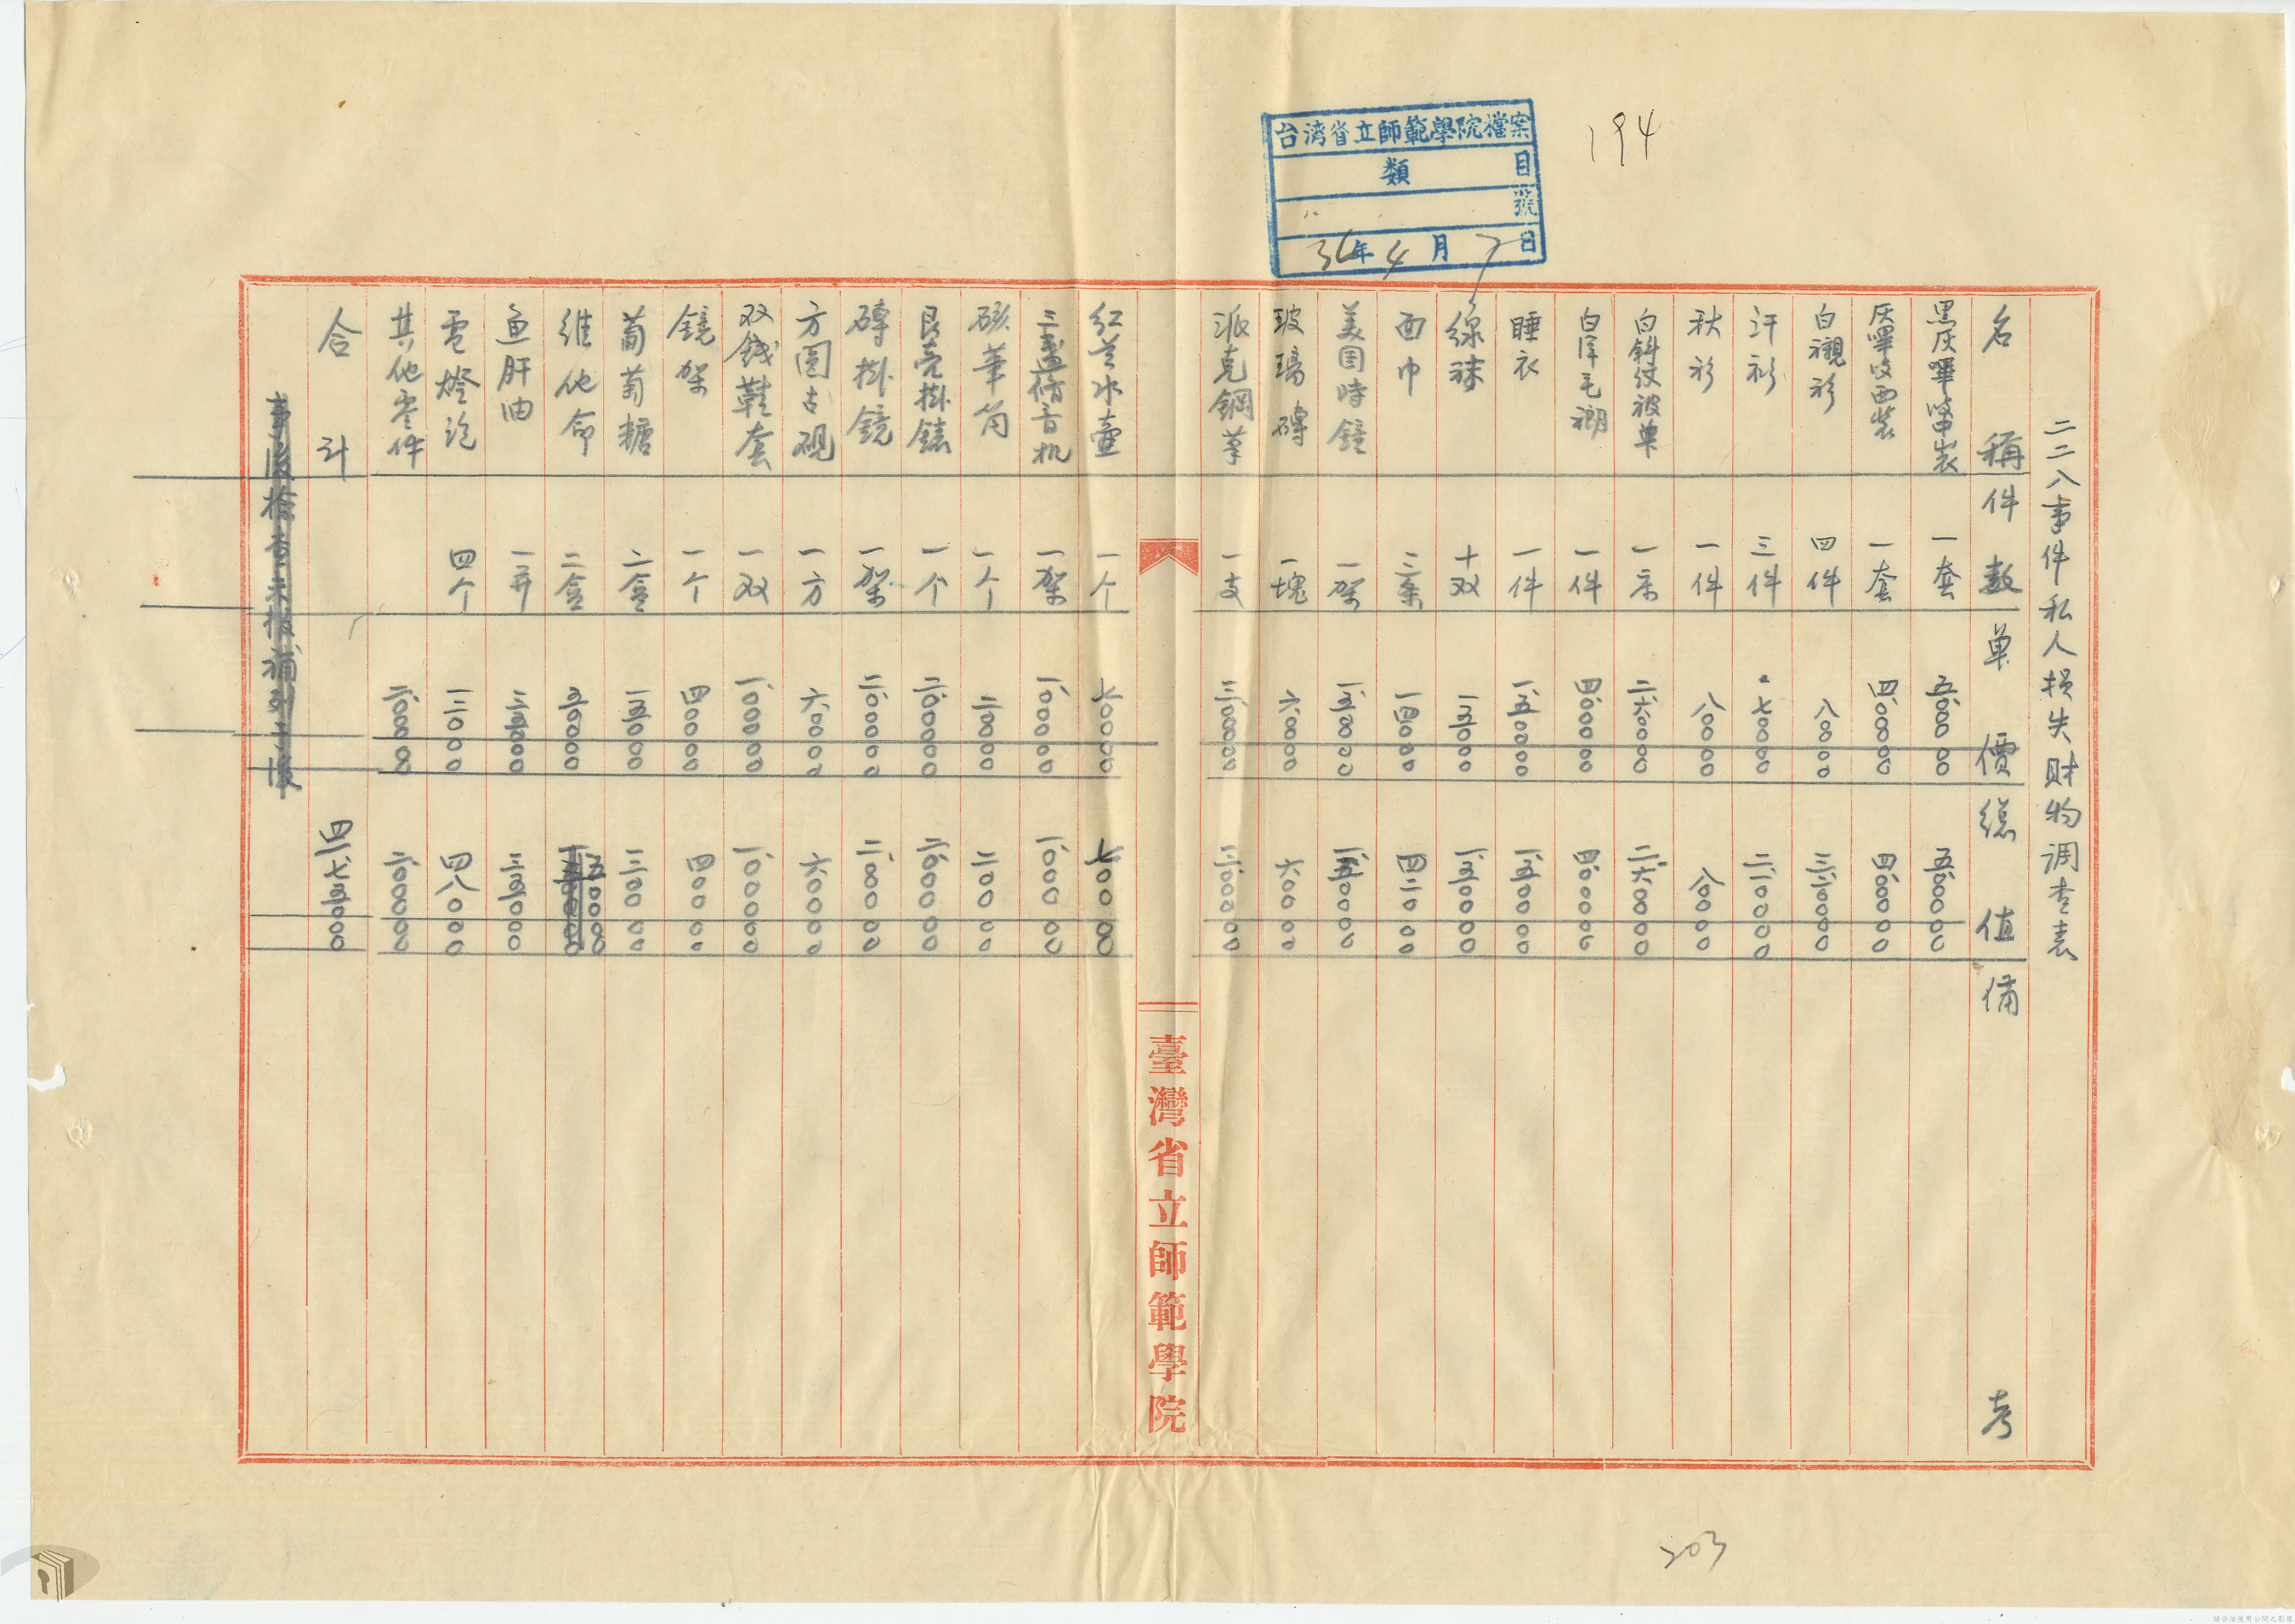 台湾省立師範學院檔案
類 目
號
36年4月7日
194
二二八事件私人損失財物調查表
名稱 件數 单價 總值 備考
黑灰嗶嘰中裝 一套 五〇〇〇〇〇 五〇〇〇〇〇
灰嗶嘰西裝 一套 四〇〇〇〇〇 四〇〇〇〇〇
白襯衫 四件 八〇〇〇〇 三二〇〇〇〇
汗衫 三件 七〇〇〇〇 二一〇〇〇〇
秋衫 一件 八〇〇〇〇 八〇〇〇〇
白斜纹被单 一床 二六〇〇〇〇 二六〇〇〇〇
白洋毛 一件 四〇〇〇〇〇 四〇〇〇〇〇
睡衣 一件 一五〇〇〇〇 一五〇〇〇〇
線袜 十双 一五〇〇〇 一五〇〇〇〇
面巾 三条 一四〇〇〇 四二〇〇〇
美国時鐘 一架 一五〇〇〇〇 一五〇〇〇〇
玻璃磚 一塊 六〇〇〇〇 六〇〇〇〇
派克鋼筆 一支 三〇〇〇〇〇 三〇〇〇〇〇
臺灣省立師範學院
紅兰水壷 一个 七〇〇〇〇 七〇〇〇〇
三盞脩音机 一架 一〇〇〇〇〇 一〇〇〇〇〇
筆筒 一个 二〇〇〇〇 二〇〇〇〇
亮掛鏡 一个 二〇〇〇〇〇 二〇〇〇〇〇
磚掛鏡 一架 二〇〇〇〇〇 二〇〇〇〇〇
方圓古硯 一方 六〇〇〇〇 六〇〇〇〇
双錢鞋套 一双 一〇〇〇〇〇 一〇〇〇〇〇
鏡架 一个 四〇〇〇〇 四〇〇〇〇
葡萄糖 二盒 一五〇〇〇 三〇〇〇〇
維他命 二盒 五〇〇〇〇
魚肝油 一 三五〇〇〇 三五〇〇〇
電燈泡 四个 一二〇〇〇 四八〇〇〇
其他零件 二〇〇〇〇〇 二〇〇〇〇〇
合計
事後檢查未報補列于後
203
請合法使用公開之影像